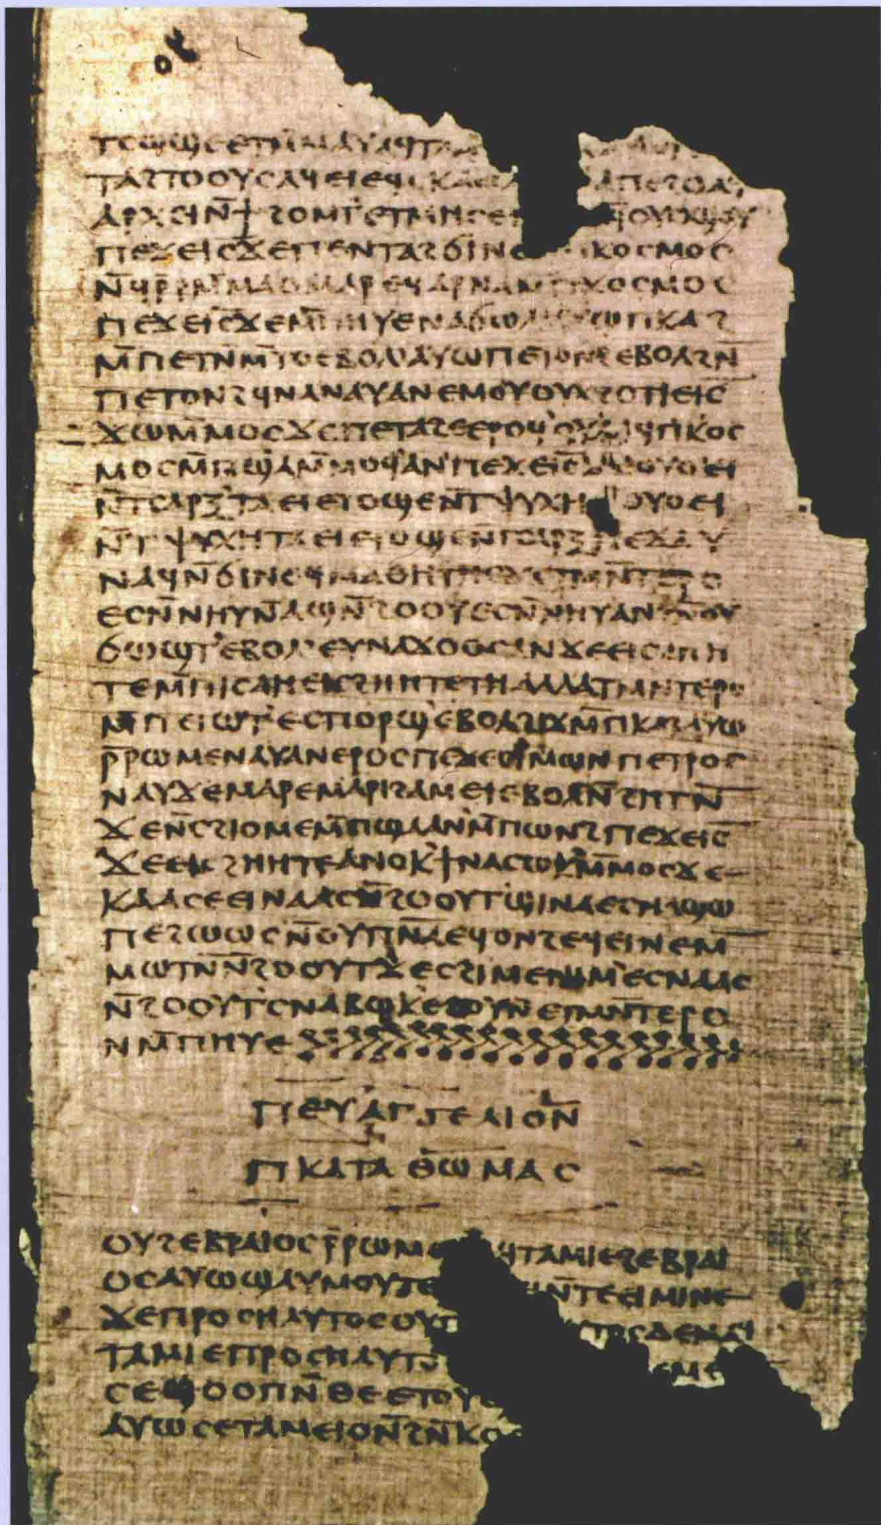 ⲧⲥⲱϣⲉ ⲉⲧⲙ̄ⲙⲁⲩ ⲁϥⲧⲁ
ⲧⲁϩⲧⲟⲟⲩⲥ ⲁϥⲉⲓ ⲉϥⲥⲕⲁⲉⲓ ⲁⲡⲉϩⲟ ⲁϥ
ⲁⲣⲭⲉⲓ ⲛ̄ϯ ϩⲟⲙⲧ ⲉⲧⲙⲏⲥⲉ ϥⲟⲩⲟϣⲟⲩ
ⲡⲉϫⲉ ⲓ̅ⲥ̅ ϫⲉ ⲡⲉⲛⲧⲁϩϭⲓⲛⲉ ⲕⲟⲥⲙⲟⲥ
ⲛ̄ϥⲣ̄ ⲣⲙ̄ⲙⲁⲟ ⲙⲁⲣⲉϥⲁⲣⲛⲁ ⲙ̄ⲡⲕⲟⲥⲙⲟⲥ
ⲡⲉϫⲉ ⲓ̅ⲥ̅ ϫⲉ ⲙ̄ⲡⲏⲩⲉ ⲛⲁϭⲱⲗ ⲁⲩⲱ ⲡⲕⲁϩ
ⲙ̄ⲡⲉⲧⲛ̄ⲙ̄ⲧⲟ ⲉⲃⲟⲗ ⲁⲩⲱ ⲡⲉⲧⲟⲛϩ ⲉⲃⲟⲗ ϩⲛ̄
ⲡⲉⲧⲟⲛϩ ϥⲛⲁⲛⲁⲩ ⲁⲛ ⲉⲙⲟⲩ ⲟⲩⲭ ϩⲟⲧⲓ ⲉⲓ̅ⲥ̅
ϫⲱ ⲙ̄ⲙⲟⲥ ϫⲉ ⲡⲉⲧⲁϩⲉ ⲉⲣⲟϥ ⲟⲩⲁⲁϥ ⲡⲕⲟⲥ
ⲙⲟⲥ ⲙ̄ⲡϣⲁ ⲙ̄ⲙⲟϥ ⲁⲛ ⲡⲉϫⲉ ⲓ̅ⲥ̅ ϫⲉ ⲟⲩⲟⲉⲓ
ⲛ̄ⲧⲥⲁⲣⲝ ⲧⲁⲉⲓ ⲉⲧⲟϣⲉ ⲛ̄ⲧⲯⲩⲭⲏ ⲟⲩⲟⲉⲓ
ⲛ̄ⲧⲯⲩⲭⲏ ⲧⲁⲉⲓ ⲉⲧⲟϣⲉ ⲛ̄ⲧⲥⲁⲣⲝ ⲡⲉϫⲁⲩ
ⲛⲁϥ ⲛ̄ϭⲓ ⲛⲉϥⲙⲁⲑⲏⲧⲏⲥ ϫⲉ ⲧⲙⲛ̄ⲧⲉⲣⲟ
ⲉⲥⲛ̄ⲛⲏⲩ ⲛ̄ⲁϣ ⲛ̄ϩⲟⲟⲩ ⲉⲥⲛ̄ⲛⲏⲩ ⲁⲛ ϩⲛ̄ ⲟⲩ
ϭⲱϣⲧ ⲉⲃⲟⲗ ⲉⲩⲛⲁϫⲟⲟⲥ ⲁⲛ ϫⲉ ⲉⲓⲥϩⲏⲏ
ⲧⲉ ⲙ̄ⲡⲓⲥⲁ ⲏ ⲉⲓⲥϩⲏⲏⲧⲉ ⲧⲏ ⲁⲗⲗⲁ ⲧⲙⲛ̄ⲧⲉⲣⲟ
ⲙ̄ⲡⲉⲓⲱⲧ ⲉⲥⲡⲟⲣϣ ⲉⲃⲟⲗ ϩⲓϫⲙ̄ ⲡⲕⲁϩ ⲁⲩⲱ
ⲣ̄ⲣⲱⲙⲉ ⲛⲁⲩ ⲁⲛ ⲉⲣⲟⲥ ⲡⲉϫⲉ ⲥⲓⲙⲱⲛ ⲡⲉⲧⲣⲟⲥ
ⲛⲁⲩ ϫⲉ ⲙⲁⲣⲉ ⲙⲁⲣⲓϩⲁⲙ ⲉⲓ ⲉⲃⲟⲗ ⲛ̄ϩⲏⲧⲛ̄
ϫⲉ ⲛ̄ⲥϩⲓⲟⲙⲉ ⲙ̄ⲡϣⲁ ⲁⲛ ⲙ̄ⲡⲱⲛϩ ⲡⲉϫⲉ ⲓ̅ⲥ̅
ϫⲉ ⲉⲓⲥϩⲏⲏⲧⲉ ⲁⲛⲟⲕ ϯⲛⲁⲥⲱⲕ ⲙ̄ⲙⲟⲥ ϫⲉ
ⲕⲁⲁⲥ ⲉⲉⲓⲛⲁⲁⲥ ⲛ̄ϩⲟⲟⲩⲧ ϣⲓⲛⲁ ⲉⲥⲛⲁϣⲱ
ⲡⲉ ϩⲱⲱⲥ ⲛ̄ⲟⲩⲡ̅ⲛ̅ⲁ̅ ⲉϥⲟⲛϩ ⲉϥⲉⲓⲛⲉ ⲙ̄
ⲙⲱⲧⲛ̄ ⲛ̄ϩⲟⲟⲩⲧ ϫⲉ ⲥϩⲓⲙⲉ ⲛⲓⲙ ⲉⲥⲛⲁⲁⲥ
ⲛ̄ϩⲟⲟⲩⲧ ⲥⲛⲁⲃⲱⲕ ⲉϩⲟⲩⲛ ⲉⲧⲙⲛ̄ⲧⲉⲣⲟ
ⲛⲙ̄ⲡⲏⲩⲉ
ⲡⲉⲩⲁⲅⲅⲉⲗⲓⲟⲛ
ⲡⲕⲁⲧⲁ ⲑⲱⲙⲁⲥ
ⲟⲩϩⲉⲃⲣⲁⲓⲟⲥ ⲣ̄ⲣⲱⲙⲉ ϥⲧⲁⲙⲓⲉ ϩⲉⲃⲣⲁⲓ
ⲟⲥ ⲁⲩⲱ ϣⲁⲩⲙⲟⲩⲧⲉ ⲛ̄ⲧⲉⲉⲓⲙⲓⲛⲉ
ϫⲉ ⲡⲣⲟⲥⲏⲗⲩⲧⲟⲥ ⲟⲩⲡ ⲧⲟⲥ ⲇⲉ ⲙⲁϥ
ⲧⲁⲙⲓⲉ ⲡⲣⲟⲥⲏⲗⲩⲧⲟⲥ ⲙⲉ
ⲥⲉϣⲟⲟⲡ ⲛ̄ⲑⲉ ⲉⲧⲟⲩ
ⲁⲩⲱ ⲥⲉⲧⲁⲙⲉⲓⲟ ⲛ̄ϩⲛ̄ⲕⲟ